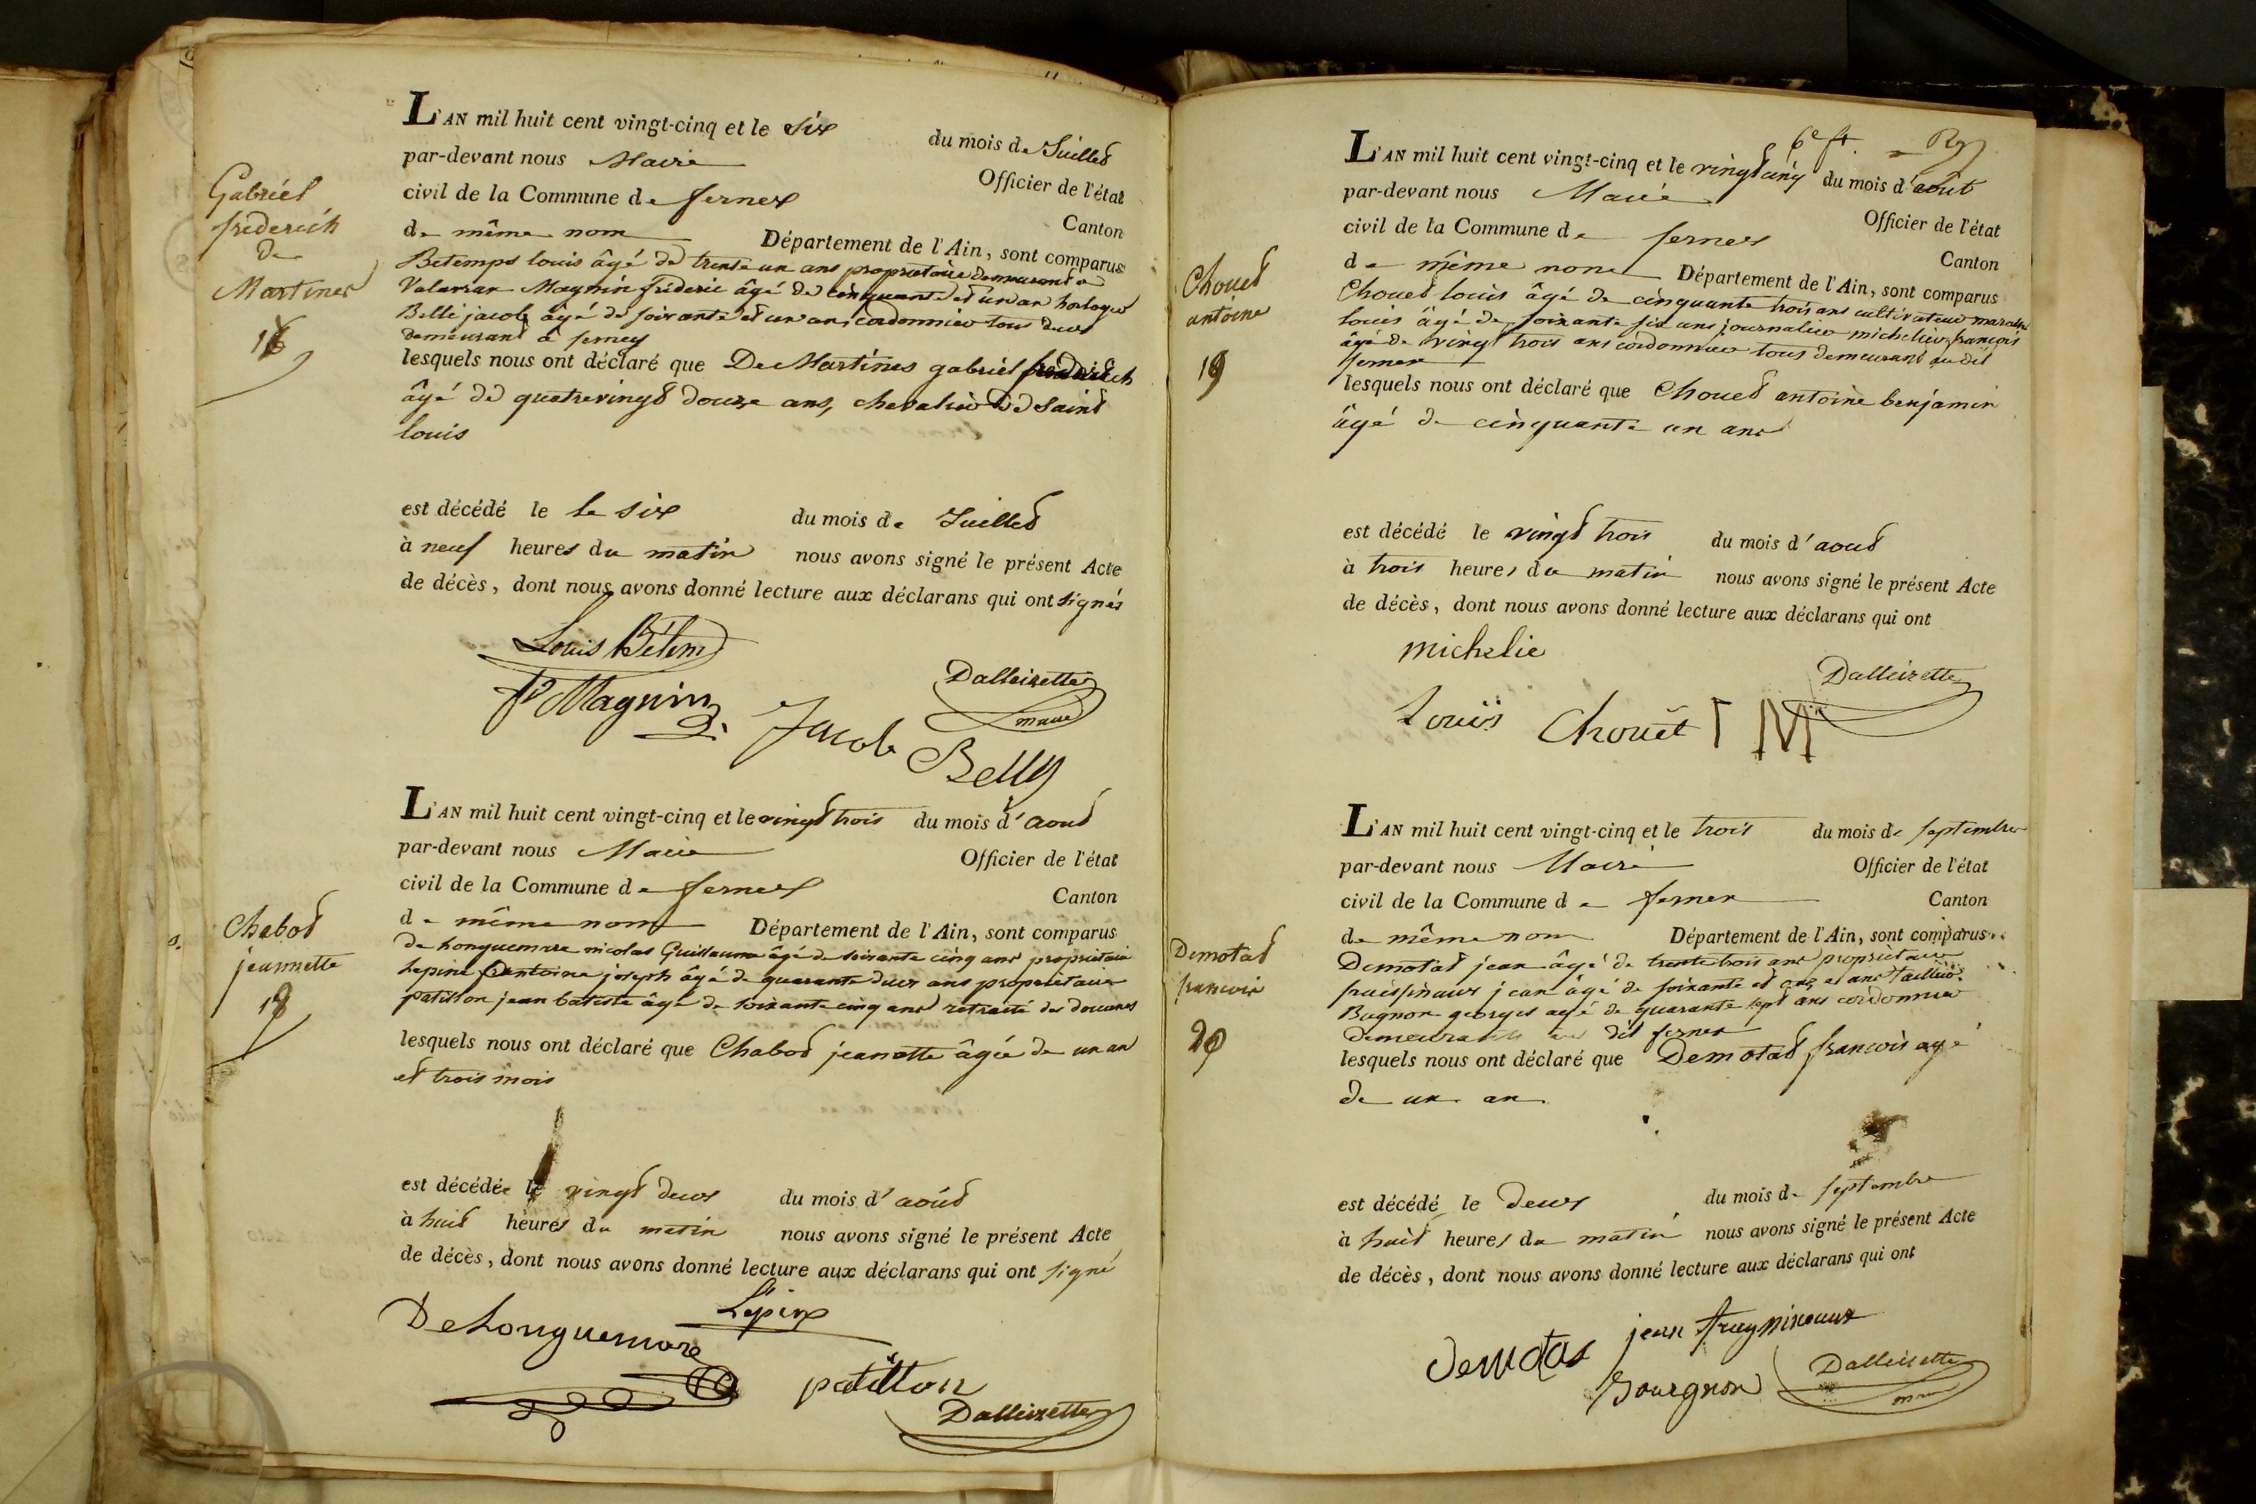 L'AN mil huit cent vingt-cinq et le six du mois de Juilled
par-devant nous Maire Officier de l'état
civil de la Commune de fernex Canton
de même nom Département de l'Ain, sont comparus
Betemps louis âgé de trente un ans proprietaire demeurant a
Valavran Magnin fréderic âgé de cinquante et un an horloger
Belli jacob âgé de soixante et un an, cordonnier tous deux
demeurant à ferney
lesquels nous ont déclaré que De Martines gabriel frederich
âgé de quatrevingd douze ans, chevalier de Saint
louis
est décédé le le six du mois de Juilled
à neuf heures du matin nous avons signé le présent Acte
de décès, dont nous avons donné lecture aux déclarans qui ont signés
Gabriel
fréderich
De
Martines
Louis Bétems
fd Magnin
Dalleizette
maire
Jacob Belly
L'AN mil huit cent vingt-cinq et le vingd trois du mois d'aoud
par-devant nous Maire Officier de l'état
civil de la Commune de fernex Canton
de même nom Département de l'Ain, sont comparus
de honguemare nicolas Guillaume âgé de soixante cinq ans proprietaire
Lepine antoine joseph âgé de quarante deux ans proprietaire
patillon jean batiste âgé de soixante cinq ans retraité des douanes
lesquels nous ont déclaré que Chabod jeanette âgée de un an
et trois mois
est décédée le vingd deux du mois d'aoúd
à huid heures du matin nous avons signé le présent Acte
de décès, dont nous avons donné lecture aux déclarans qui ont signé
Chabod
jeannette
18
Dehonguemare
Lepine
patillon
Dalleizette
6e ft.
L'AN mil huit cent vingt-cinq et le vingd cinq du mois d'août
par-devant nous Maire Officier de l'état
civil de la Commune de fernex Canton
de même nom Département de l'Ain, sont comparus
Choued louis âgé de cinquante trois ans cultivateur
louis âgé de soixante six ans journalier michelier françois
âgé de vingt trois ans cordonnier tous demeurant au dit
fernex
lesquels nous ont déclaré que Choued antoine benjamin
âgé de cinquante un ans
est décédé le vingd trois du mois d'aoud
à trois heures du matin nous avons signé le présent Acte
de décès, dont nous avons donné lecture aux déclarans qui ont
Choued
antoine
19
michelie
Dalleizette
Louis Chouet
L M
L'AN mil huit cent vingt-cinq et le trois du mois de septembre
par-devant nous Maire Officier de l'état
civil de la Commune de fernex Canton
de même nom Département de l'Ain, sont comparus
Demotad jean âgé de trente trois ans proprietaire
jean agé de soixante et onze ans tailleur
Bugnon georges agé de quarante sept ans cordonnier
demeurants au dit fernex
lesquels nous ont déclaré que Demotad françois agé
de un an
est décédé le deux du mois de septembre
à huid heures du matin nous avons signé le présent Acte
de décès, dont nous avons donné lecture aux déclarans qui ont
Demotad
francois
20
Demotas
jean
Bourgnon
Dalleizette